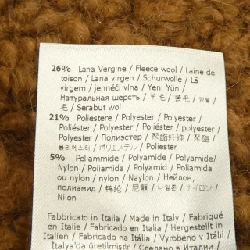 26% Lana Vergine / Fleece wool / Laine de
toison / Lana virgen / Schurwolle / Lã
virgem / jennéci vlna / Yen Yün /
Натуральная шерсть / 羊毛 /
毛 / Serabut wol
21% Poliestere / Polyester / Polyester /
Poliéster / Polyester / Poliéster / polyester /
Polyester / Полиэстер / 聚酯纖維 / 聚
폴리에스터 / ポリエステル / Poliester
5% Poliammide / Polyamide / Polyamide/
Nylon / Poliamida / Polyamid / Poliamida
ou nylon / nylon / Naylon / Нейлон,
полиамид / 錦綸 / 尼龍 / 나일론 / ナイロン /
Nilon
Fabbricato in Italia / Made in Italy / Fabriqué
en Italie / Fabricado en Italia / Hergestellt in
Italien / Fabricado na Itália / Vyrobeno v Itálii /
İtalya'da üretilmiştir / Сделано в Италии /